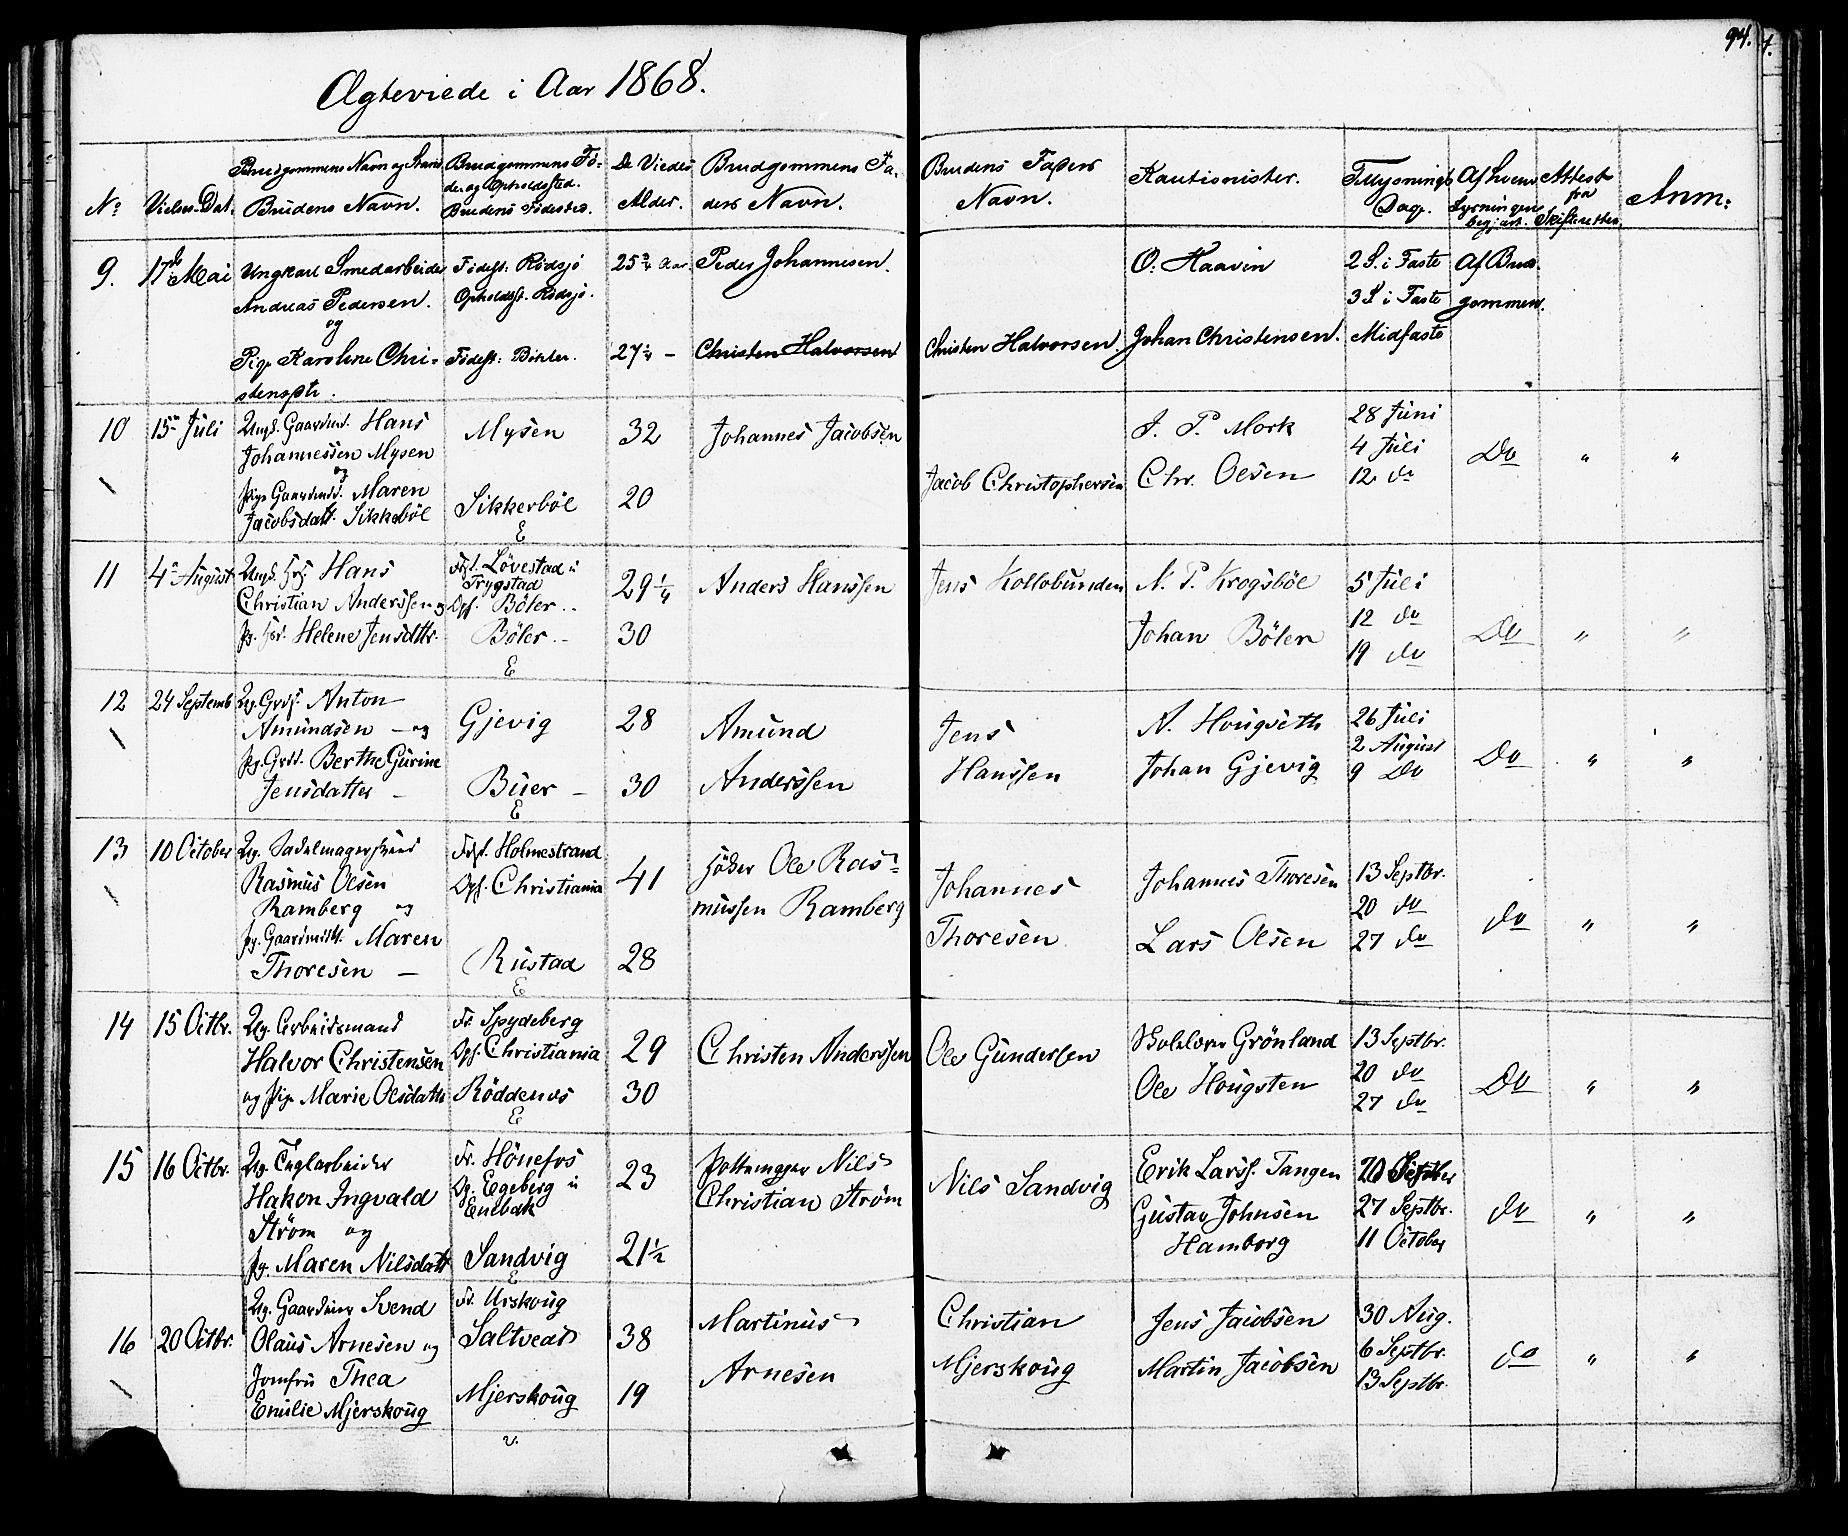 94.
Ægteviede i Aar 1868.
No
Vielses-Dat.
Brudgommens Navn og Stand
Brudens Navn.
Brudgommens Fø-
de og Opholdssted.
Brudens Fødested.
De Viedes
Alder.
Brudgommens Fa-
ders Navn.
Brudens Faders
Navn.
Kautionister.
Tillysnings
Dage.
Af hvem
Lysningen
begjært.
Attest
fra
Skifteretten.
Anm:
9.
17de Mai
Ungkarl Smedarbeider
Andreas Pedersen.
og
Pige Karoline Chri-
stensdtr.
Fødest: Rødsjø
Opholdst. Rødsjø.
Fødest: Bikter.
25 3/4 Aar.
27 1/4 -
Peder Johannesen.
Christen Halvorsen
Christen Halvorsen.
O: Haavin
Johan Christensen.
2 S. i Faste
3 S. i Faste
Midfaste
Af Brud-
gommen.
10
15de Juli
Ungk. Gaardmd. Hans
Johannessen Mysen
og
Pige Gaardmd. Maren
Jacobsdatt. Sikkebøl
Mysen
Sikkerbøl
E
32
20
Johannes Jacobsen
Jacob Christophersen
J. P. Mork
Chr. Olsen
28 Juni
4 Juli
12 do
Do
"
"
11
4de August
Ungk. Hans
Christian Anderssen og
Pg. Helene Jensdttr.
Fdst. Løvestad i
Trygstad
Opst. Bøler -
Bøler -
E
29 1/4
30
Anders Hanssen
Jens Kollobunden
N. P. Krogsbøl
Johan Bøler
5 Juli
12 do
19 do
Do
"
"
12
24 Septemb
Ug. Grds. Anton
Amundsen - og
Pg. Grdd. Berthe Gurine
Jensdatter -
Gjevig
Buer -
E
28
30
Amund
Anderssen
Jens
Hanssen
A. Hougseth
Johan Gjevig
26 Juli
2 August
9 Do
Do
"
"
13
10 October
Ug. Sadelmagersvend
Rasmus Olsen
Ramberg og
Pg. Gaardmdtt. Maren
Thoresen -
Fdst. Holmestrand
Opst. Christiania
Rustad
E
41
28
Høker Ole Ras-
mussen Ramberg
Johannes
Thoresen
Johannes Thoresen
Lars Olsen
13 Septbr.
20 do
27 do
do
"
"
14
15 Octbr.
Ug. Arbeidsmand
Halvor Christensen
og Pige Marie Olsdattr
Fr. Spydeberg
Opst. Christiania
Röddenes
E
29
30
Christen Anderssen
Ole Gundersen
Grönland
Ole Hougsten
13 Septbr.
20 do
27 do
Do
"
"
15
16 Octbr.
Ug. Teglarbeider
Hakon Ingvald
Strøm og
Pg. Maren Nilsdatt
Fr. Hönefos
Op. Egeberg i
Enebak
Sandvig
E
23
21 1/2
Pottemager Nils
Christian Strøm
Nils Sandvig
Erik Larss. Tangen
Gustav Johnsen
Hamborg
20 Septber
27 Septbr.
11 October
do
"
"
16
20 Octbr.
Ug. Gaardeier Svend
Olaus Arnesen og
Jomfru Thea
Emilie Mjerskoug
Fd. Urskoug
Saltveit
Mjerskoug
v.
38
19
Martinus
Arnesen
Christian
Mjerskoug
Jens Jacobsen
Martin Jacobsen
30 Aug.
6 Septbr.
13 Septbr.
do
"
"